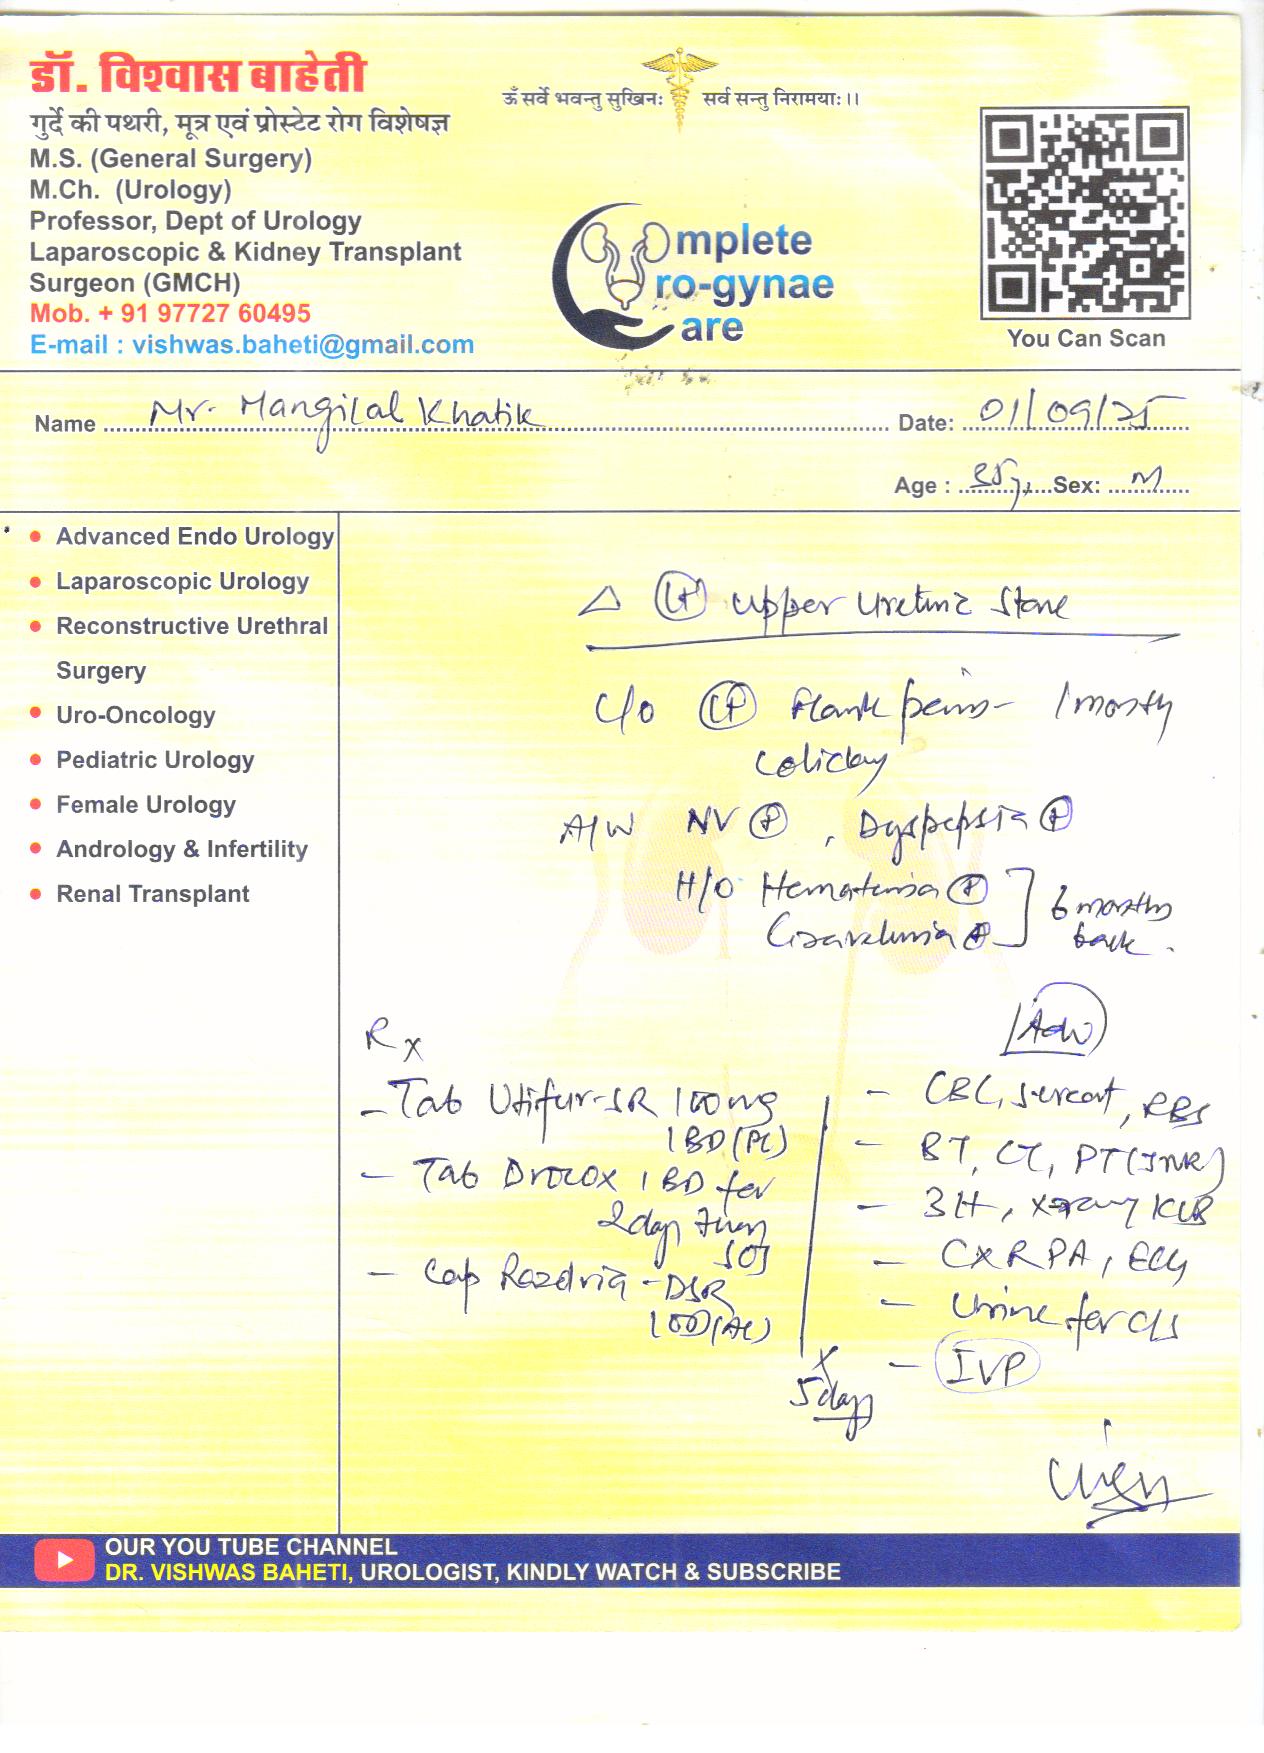 डॉ. विश्वास बाहेती
गुर्दे की पथरी, मूत्र एवं प्रोस्टेट रोग विशेषज्ञ
M.S. (General Surgery)
M.Ch. (Urology)
Professor, Dept of Urology
Laparoscopic & Kidney Transplant
Surgeon (GMCH)
Mob. + 91 97727 60495
E-mail : vishwas.baheti@gmail.com
ॐ सर्वे भवन्तु सुखिनः सर्व सन्तु निरामयाः।।
Complete
Uro-gynae
Care
You Can Scan
Name Mr. Mangilal Khatik Date: 01/09/25
Age : Sex: M
Advanced Endo Urology
Laparoscopic Urology
Reconstructive Urethral
Surgery
Uro-Oncology
Pediatric Urology
Female Urology
Andrology & Infertility
Renal Transplant
△ (Lt) Upper Ureteric Stone
C/O (Lt) Flank pain - 1 month
Colicky
A/W NV (+) , Dyspepsia (+)
H/O Hematuria (+)
(+) 6 months
back.
Rx
- Tab Utifur-SR 100mg
1 BD (PC)
- Tab Drocox 1 BD for
2 days then
SOS
- Cap Razdria - DSR
1 OD (AC)
x
5 days
Adv
- CBC, S. creat, RBS
- BT, CT, PT (INR)
- 3H, X-ray KUB
- CXR PA, ECG
- Urine for C/S
- IVP
OUR YOU TUBE CHANNEL
DR. VISHWAS BAHETI, UROLOGIST, KINDLY WATCH & SUBSCRIBE